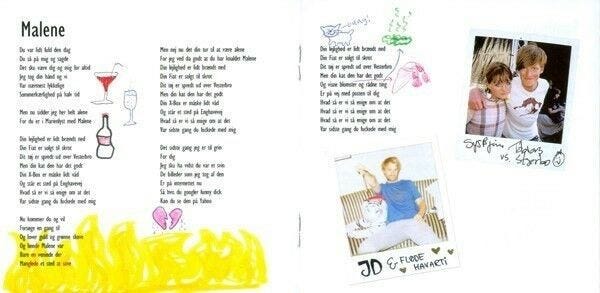 Malene
Du var lidt fuld den dag
Du så på mig og sagde
Det sku være dig og mig for altid
Jeg tog din hånd og vi
Var nærmest lykkelige
Sommerkærlighed på hale tid
Men nu sidder jeg her helt alene
For du er i Marienlyst med Malene
Din lejlighed er lidt brændt ned
Din Fiat er solgt til skrot
Dit tøj er spredt ud over Vesterbro
Men din kat den har det godt
Din X-Box er måske lidt våd
Og står et sted på Enghavevej
Hvad så er vi så enige om at det
Var sidste gang du fuckede med mig
Nu kommer du og vil
Forsøge en gang til
Og lover guld og grønne skove
Og hende Malene var
Bare en veninde der
Manglede et sted at sove
Men nej nu det din tur til at være alene
For jeg ved da godt at du har knaldet Malene
Din lejlighed er lidt brændt ned
Din Fiat er solgt til skrot
Dit tøj er spredt ud over Vesterbro
Men din kat den har det godt
Din X-Box er måske lidt våd
Og står et sted på Enghavevej
Hvad så er vi så enige om at det
Var sidste gang du fuckede med mig
Det sidste gang jeg er til grin
For dig
Jeg sku ha vidst du var et svin
De billeder som jeg tog af den
Er på internettet nu
Så hvis du googler funny dick
Kan du se den på Yahoo
Din lejlighed er lidt brændt ned
Din Fiat er solgt til skrot
Dit tøj er spredt ud over Vesterbro
Men din kat den har det godt
Og visne blomster og rådne ting
Er på vej med posten til dig
Hvad så er vi så enige om at det
Hvad så er vi så enige om at det
Hvad så er vi så enige om at det
Var sidste gang du fuckede med mig
vs.
JD & FLØDE
HAVARTI